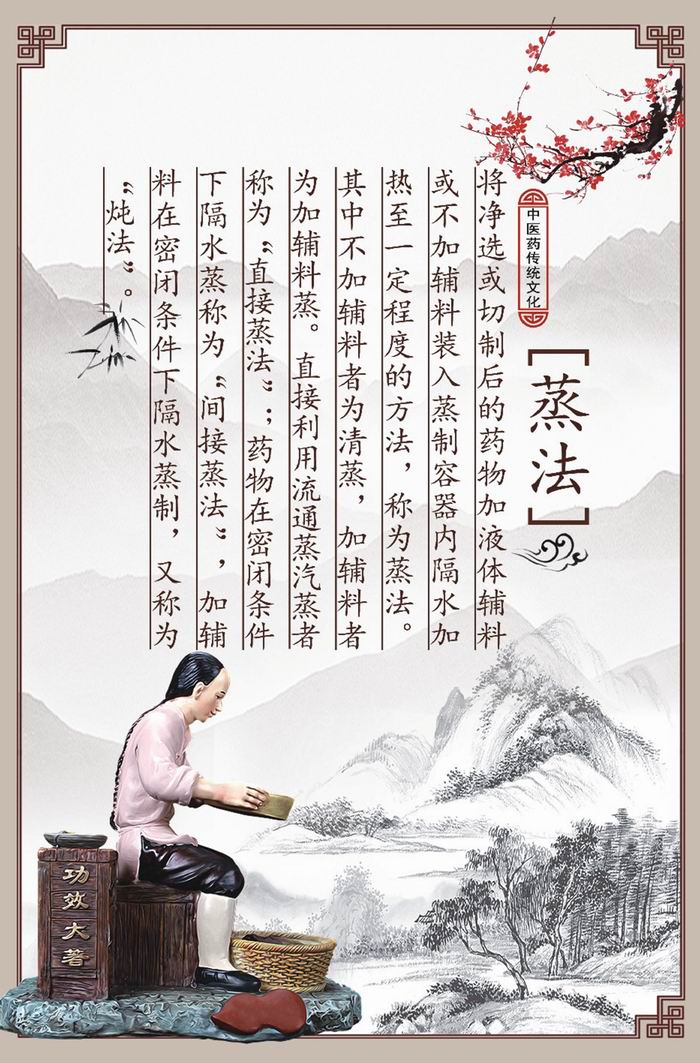 中医药传统文化
[蒸法]
将净选或切制后的药物加液体辅料
或不加辅料装入蒸制容器内隔水加
热至一定程度的方法，称为蒸法。
其中不加辅料者为清蒸，加辅料者
为加辅料蒸。直接利用流通蒸汽蒸者
称为“直接蒸法”；药物在密闭条件
下隔水蒸称为“间接蒸法”，加辅
料在密闭条件下隔水蒸制，又称为
“炖法”。
功效大著